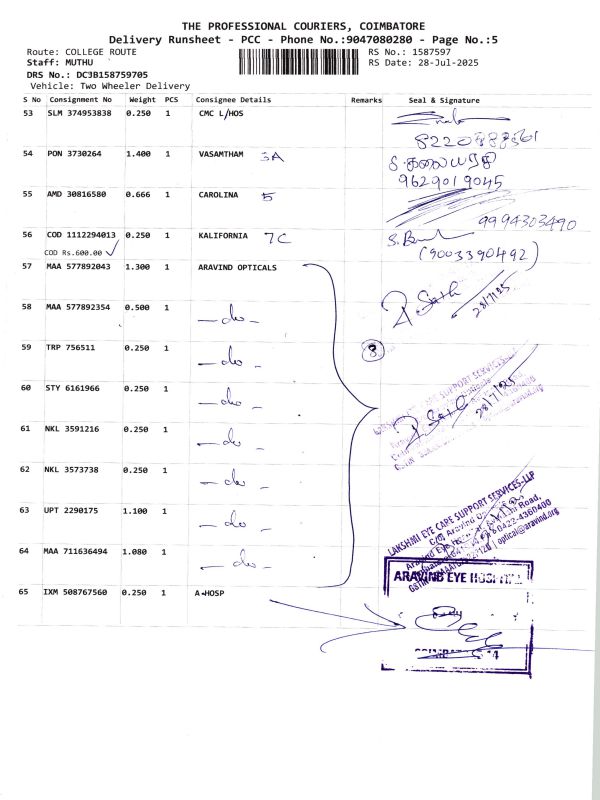 THE PROFESSIONAL COURIERS, COIMBATORE
Delivery Runsheet - PCC - Phone No.:9047080280 - Page No.:5
Route: COLLEGE ROUTE RS No.: 1587597
Staff: MUTHU RS Date: 28-Jul-2025
DRS No.: DC3B158759705
Vehicle: Two Wheeler Delivery
S No Consignment No Weight PCS Consignee Details Remarks Seal & Signature
53 SLM 374953838 0.250 1 CMC L/HOS
54 PON 3730264 1.400 1 VASAMTHAM 3A
9629019045
55 AMD 30816580 0.666 1 CAROLINA 5
9994303490
56 COD 1112294013 0.250 1 KALIFORNIA 7C
COD Rs.600.00 ✓ (9003390492)
57 MAA 577892043 1.300 1 ARAVIND OPTICALS
28/7/25
58 MAA 577892354 0.500 1 -do-
59 TRP 756511 0.250 1 -do- 8
60 STY 6161966 0.250 1 -do-
LAKSHMI EYE CARE SUPPORT SERVICES-LLP
28/7/25
61 NKL 3591216 0.250 1 -do-
62 NKL 3573738 0.250 1 -do-
63 UPT 2290175 1.100 1 -do-
LAKSHMI EYE CARE SUPPORT SERVICES-LLP
64 MAA 711636494 1.080 1 -do-
ARAVIND EYE HOSPITAL
65 IXM 508767560 0.250 1 A-HOSP